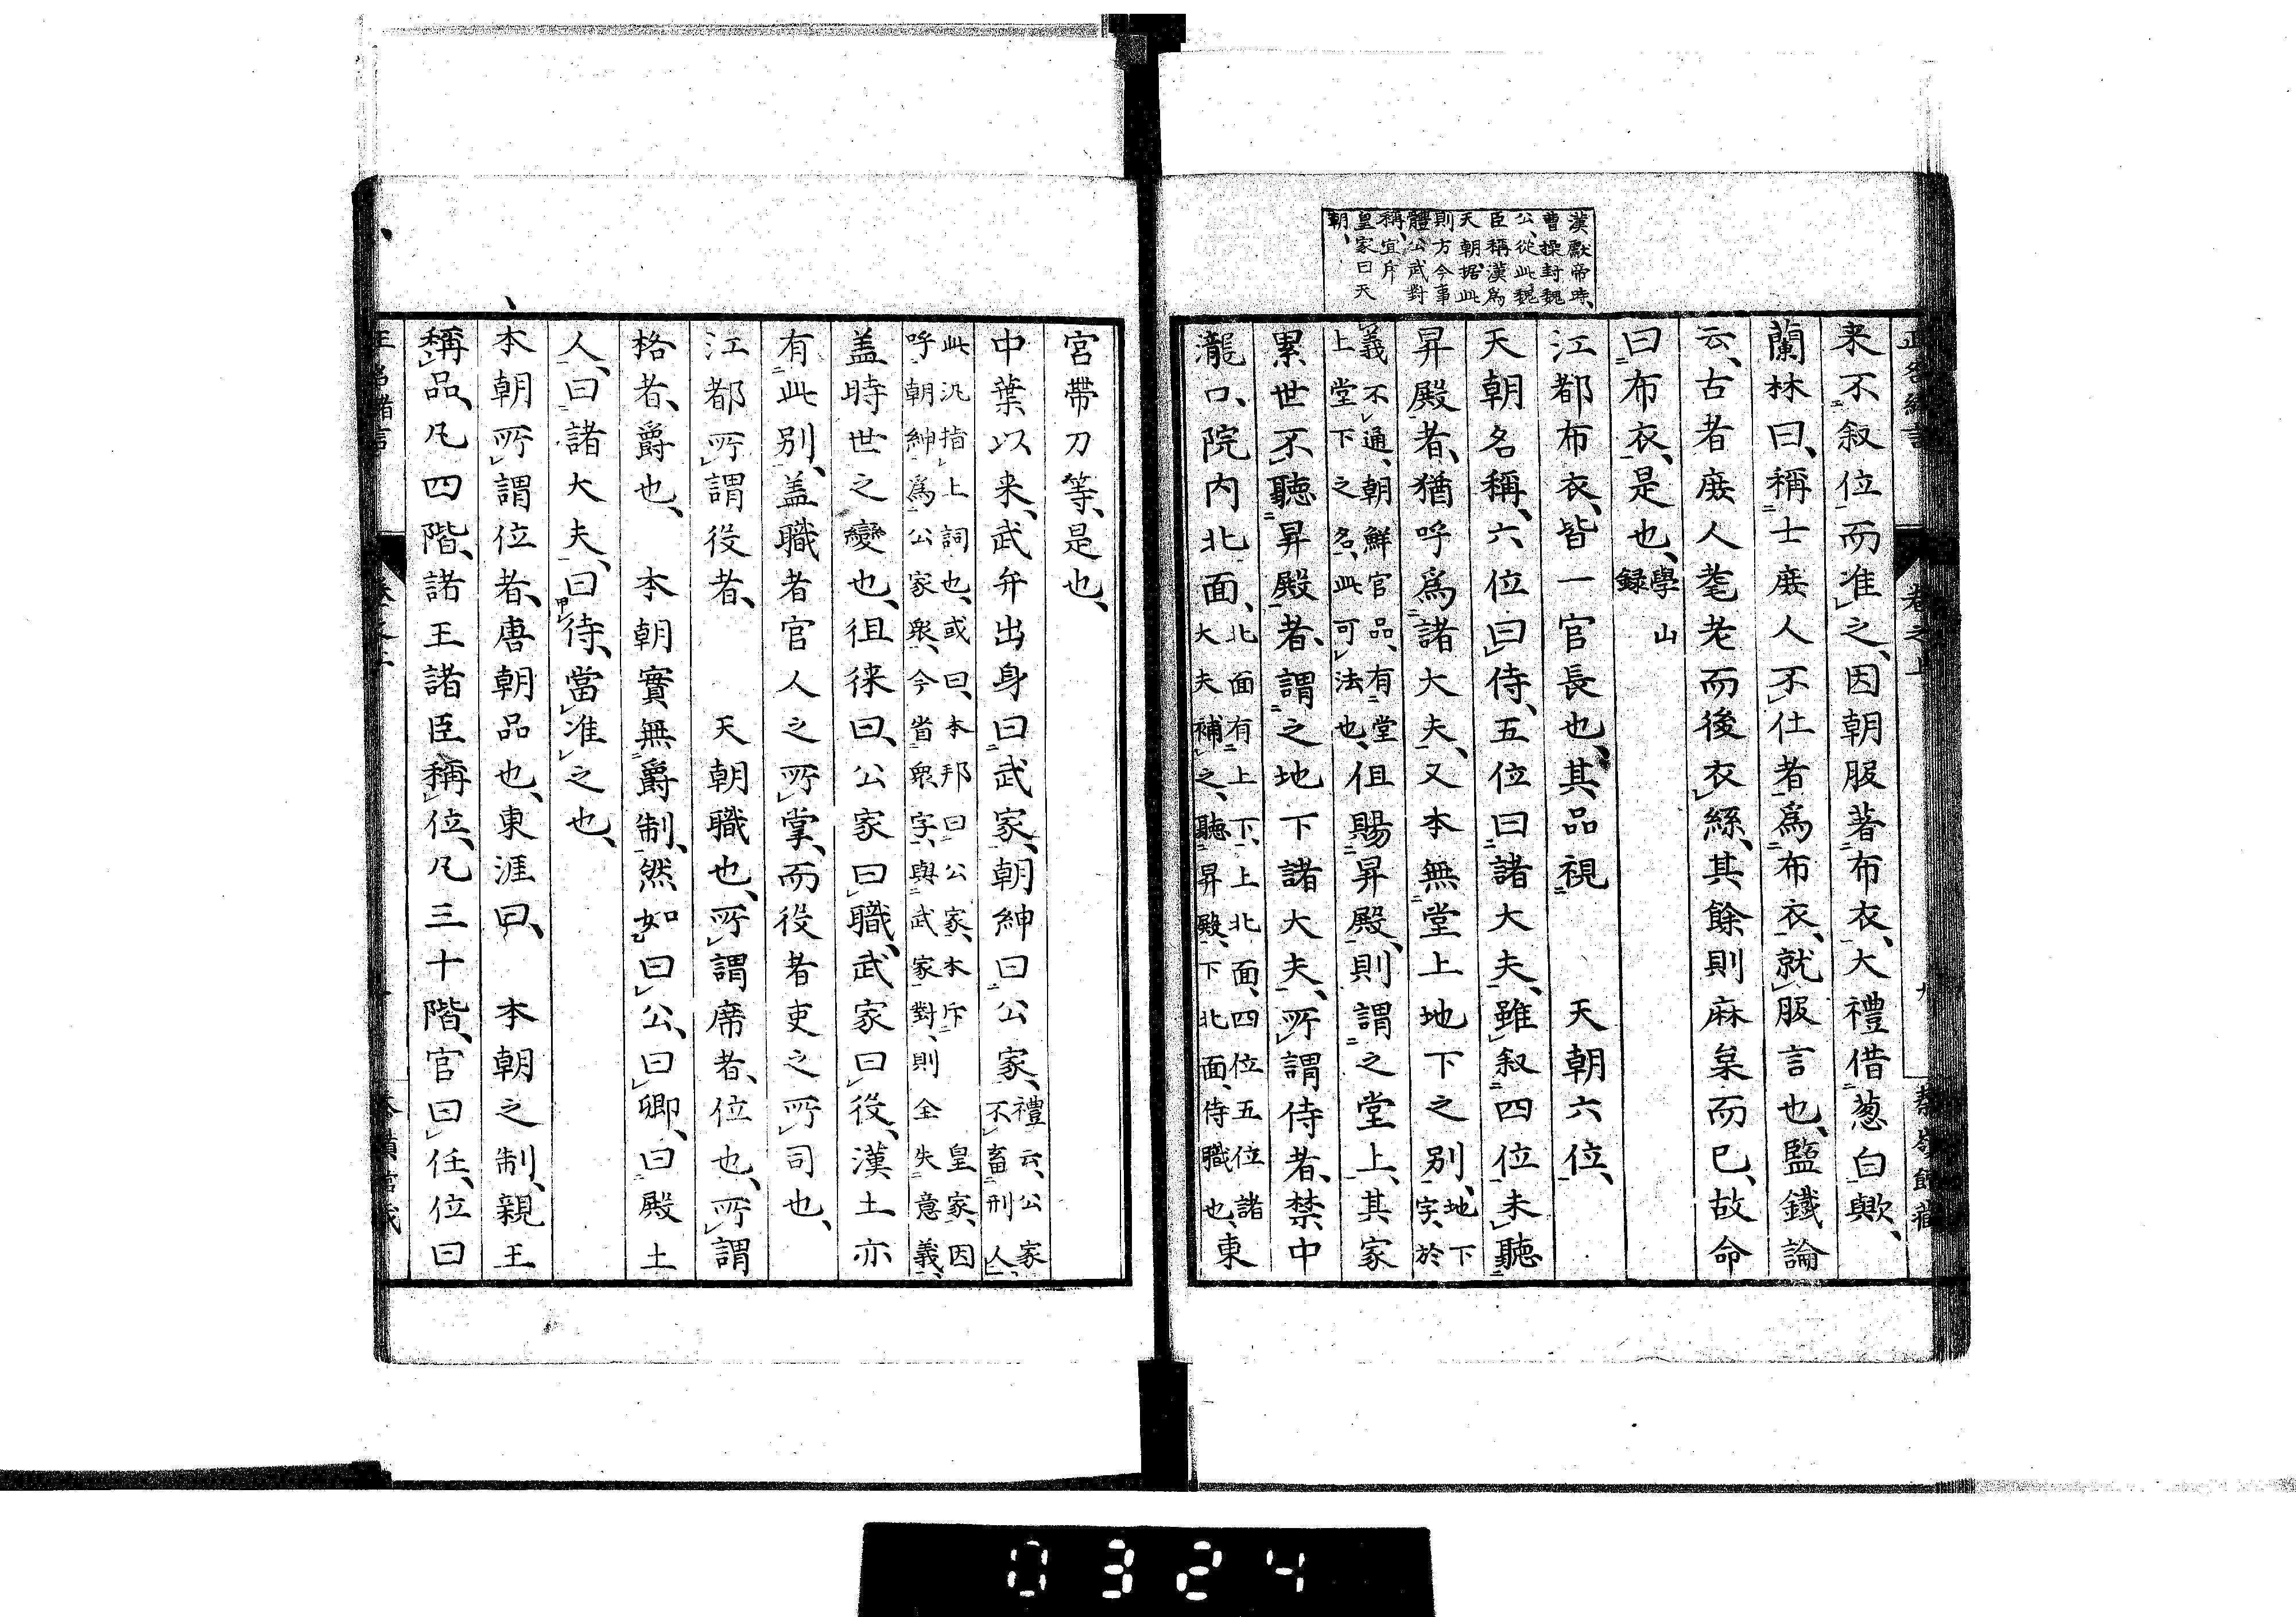 漢獻帝時、
曹操封魏
公、從此魏
臣稱漢爲
天朝、据此
則方今事
體、公武對
稱、宜斥
皇家曰天
朝、
来不叙位而准之、因朝服著布衣、大禮借葱白歟、
蘭林曰、稱士庻人不仕者爲布衣、就服言也、鹽鐵論
云、古者庻人耄老而後衣絲、其餘則麻枲而已、故命
曰布衣、是也、學山
録
江都布衣、皆一官長也、其品視　天朝六位、
天朝名稱、六位曰侍、五位曰諸大夫、雖叙四位未聽
昇殿者、猶呼爲諸大夫、又本無堂上地下之別、地下
字、於
義不通、朝鮮官品、有堂
上堂下之名、此可法也、伹賜昇殿、則謂之堂上、其家
累世不聽昇殿者、謂之地下諸大夫、所謂侍者、禁中
瀧口、院内北面、北面有上下、上北面、四位五位諸
大夫補之、聽昇殿、下北面、侍職也、東
正名緒言　卷之上　九
宮帶刀等、是也、
中葉以来、武弁出身曰武家、朝紳曰公家、禮云、公家
不畜刑人、
此汎指上詞也、或曰、本邦曰公家、本斥　皇家、因
呼朝紳爲公家衆、今省衆字、與武家對、則全失意義、
盖時世之變也、徂徠曰、公家曰職、武家曰役、漢土亦
有此別、盖職者官人之所掌、而役者吏之所司也、
江都所謂役者、　天朝職也、所謂席者、位也、所謂
格者、爵也、　本朝實無爵制、然如曰公、曰卿、曰殿上
人、曰諸大夫、曰侍、當准之也、
本朝所謂位者、唐朝品也、東涯曰、　本朝之制、親王
稱品、凡四階、諸王諸臣稱位、凡三十階、官曰任、位曰
0324